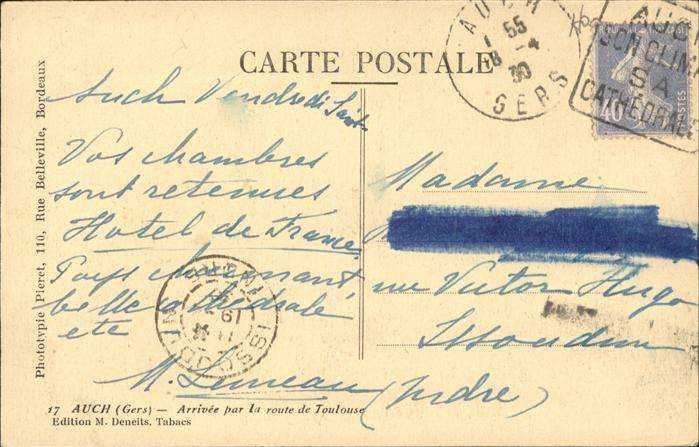 CARTE POSTALE
Phototypie Pieret, 110, Rue Belleville, Bordeaux
AUCH
1 55
18 -4
30
GERS
AUC
SON CLIMA
SA
CATHÉDRALE
40
POSTES
Auch Vendredi Saint
Vos chambres
sont retenues
Hotel de France
Pays charmant
belle cathédrale
etc
M. Lumeau
Madame
rue Victor Hugo
Issoudun
(Indre)
ISSOUDUN
INDRE
19
17 AUCH (Gers) — Arrivée par la route de Toulouse
Edition M. Deneits, Tabacs